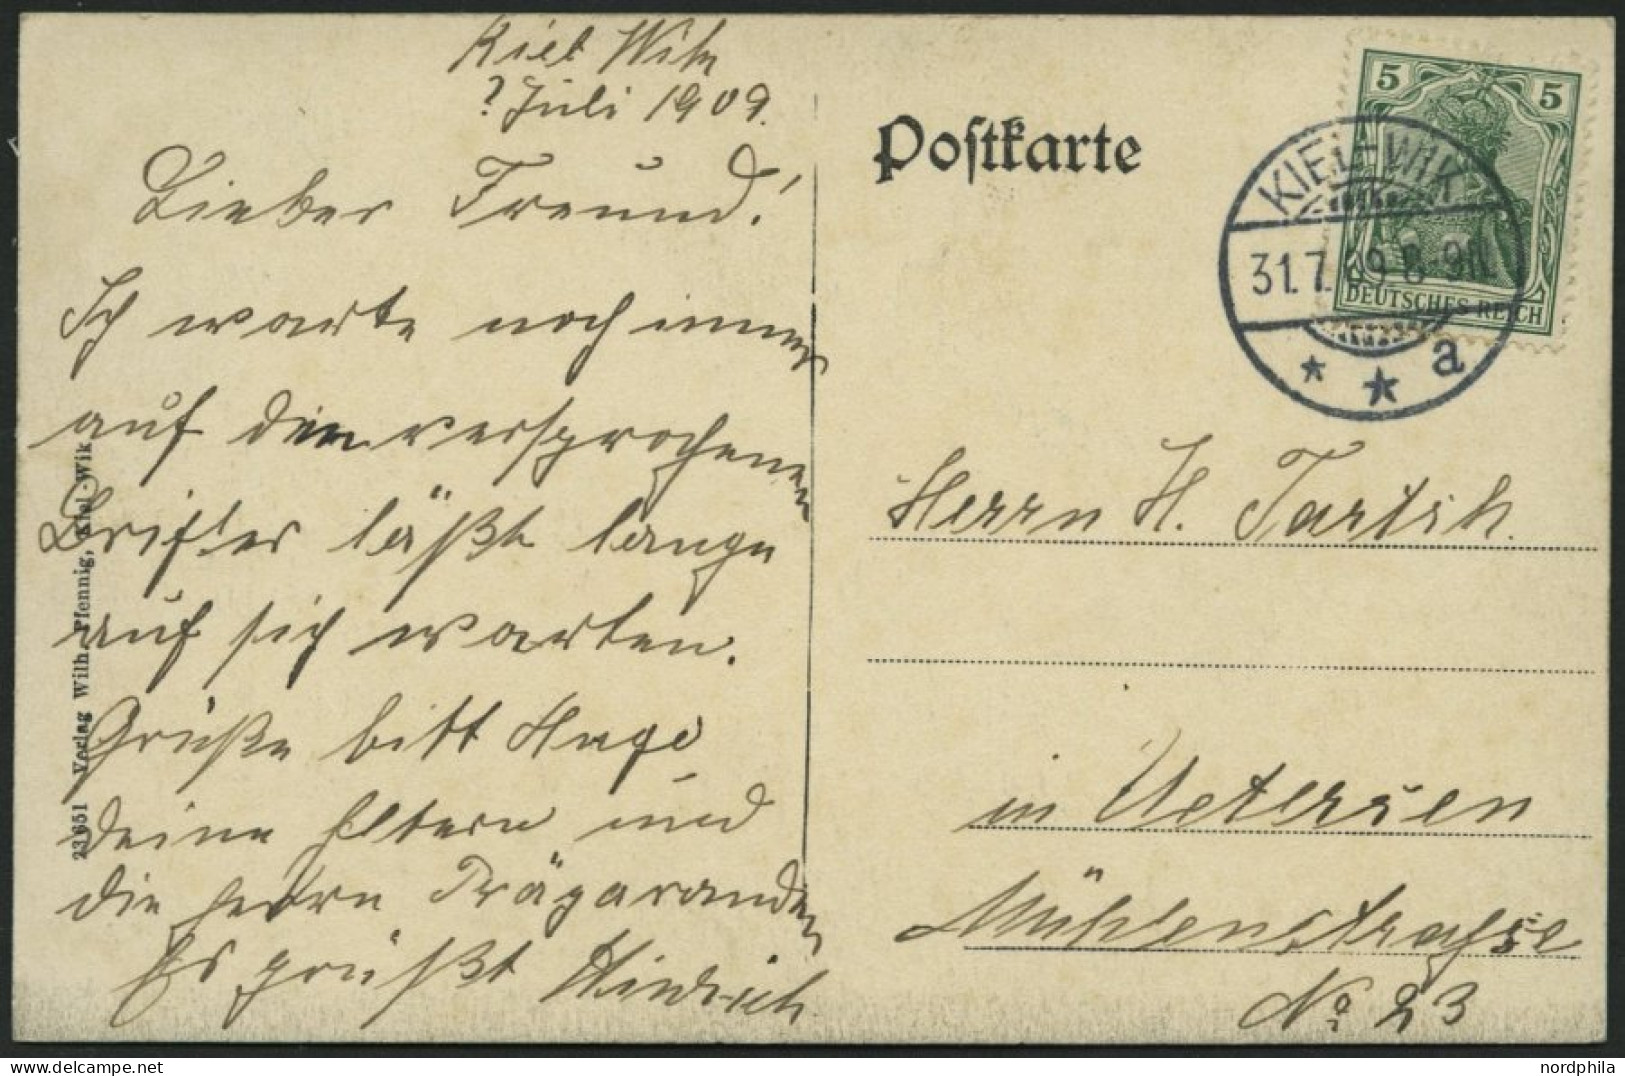 Kiel Wik
? Juli 1909.
Lieber Freund!
Ich warte noch immer
auf den versprochenen
Brif er läßt lange
auf sich warten.
Grüße bitt Hugo
deine Eltern und
die Herrn Präparanden
Es grüßt Hindrich
23651 Verlag Wilh. Pfennig, Kiel-Wik
Postkarte
5 5
DEUTSCHES REICH
KIEL-WIK
31.7.09 8-9N.
* * a
Herrn H. Tartsch.
in Uetersen
Mühlenstraße
No 23
nordphila